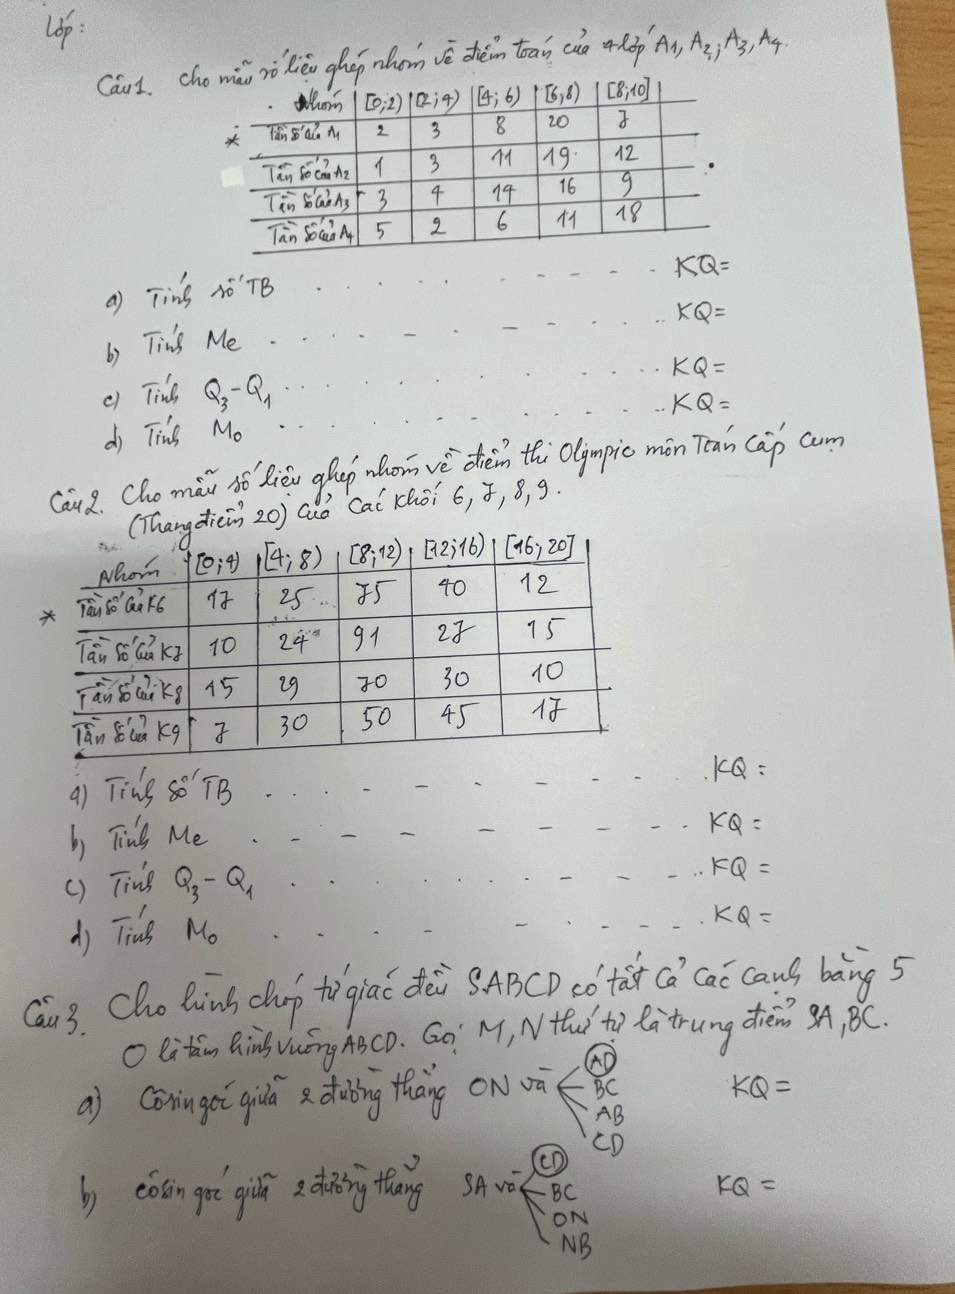 Lớp:
Câu 1. Cho mẫu số liệu ghép nhóm về điểm toán của 4 lớp A1, A2, A3, A4.
Nhóm [0;2) [2;4) [4;6) [6;8) [8;10]
* Tần số của A1 2 3 8 20 7
Tần số của A2 1 3 11 19 12
Tần số của A3 3 4 14 16 9
Tần số của A4 5 2 6 11 18
a) Tính số TB . . . . - - - - - .. KQ=
b) Tính Me . . . . - - - - . . .. KQ=
c) Tính Q3-Q1 . . . . . . . . . . KQ=
d) Tính Mo . . . . . - - - . . .. KQ=
Câu 2. Cho mẫu số liệu ghép nhóm về điểm thi Olympic môn Toán Cấp Cụm
(Thang điểm 20) của các khối 6, 7, 8, 9.
Nhóm [0;4) [4;8) [8;12) [12;16) [16;20]
* Tần số của K6 17 25 75 40 12
Tần số của K7 10 24 91 27 15
Tần số của K8 15 29 70 30 10
Tần số của K9 7 30 50 45 17
a) Tính số TB . . - - - - - - - . KQ =
b) Tính Me . - - - - - - - - . KQ =
c) Tính Q3-Q1 . . . . . . - - - .. KQ =
d) Tính Mo . - . - - . - - - . KQ =
Câu 3. Cho hình chóp tứ giác đều S.ABCD có tất cả các cạnh bằng 5
O là tâm hình vuông ABCD. Gọi M, N thứ tự là trung điểm SA, BC.
a) Côsin góc giữa 2 đường thẳng ON và AD KQ =
BC
AB
CD
b) côsin góc giữa 2 đường thẳng SA và CD KQ =
BC
ON
NB